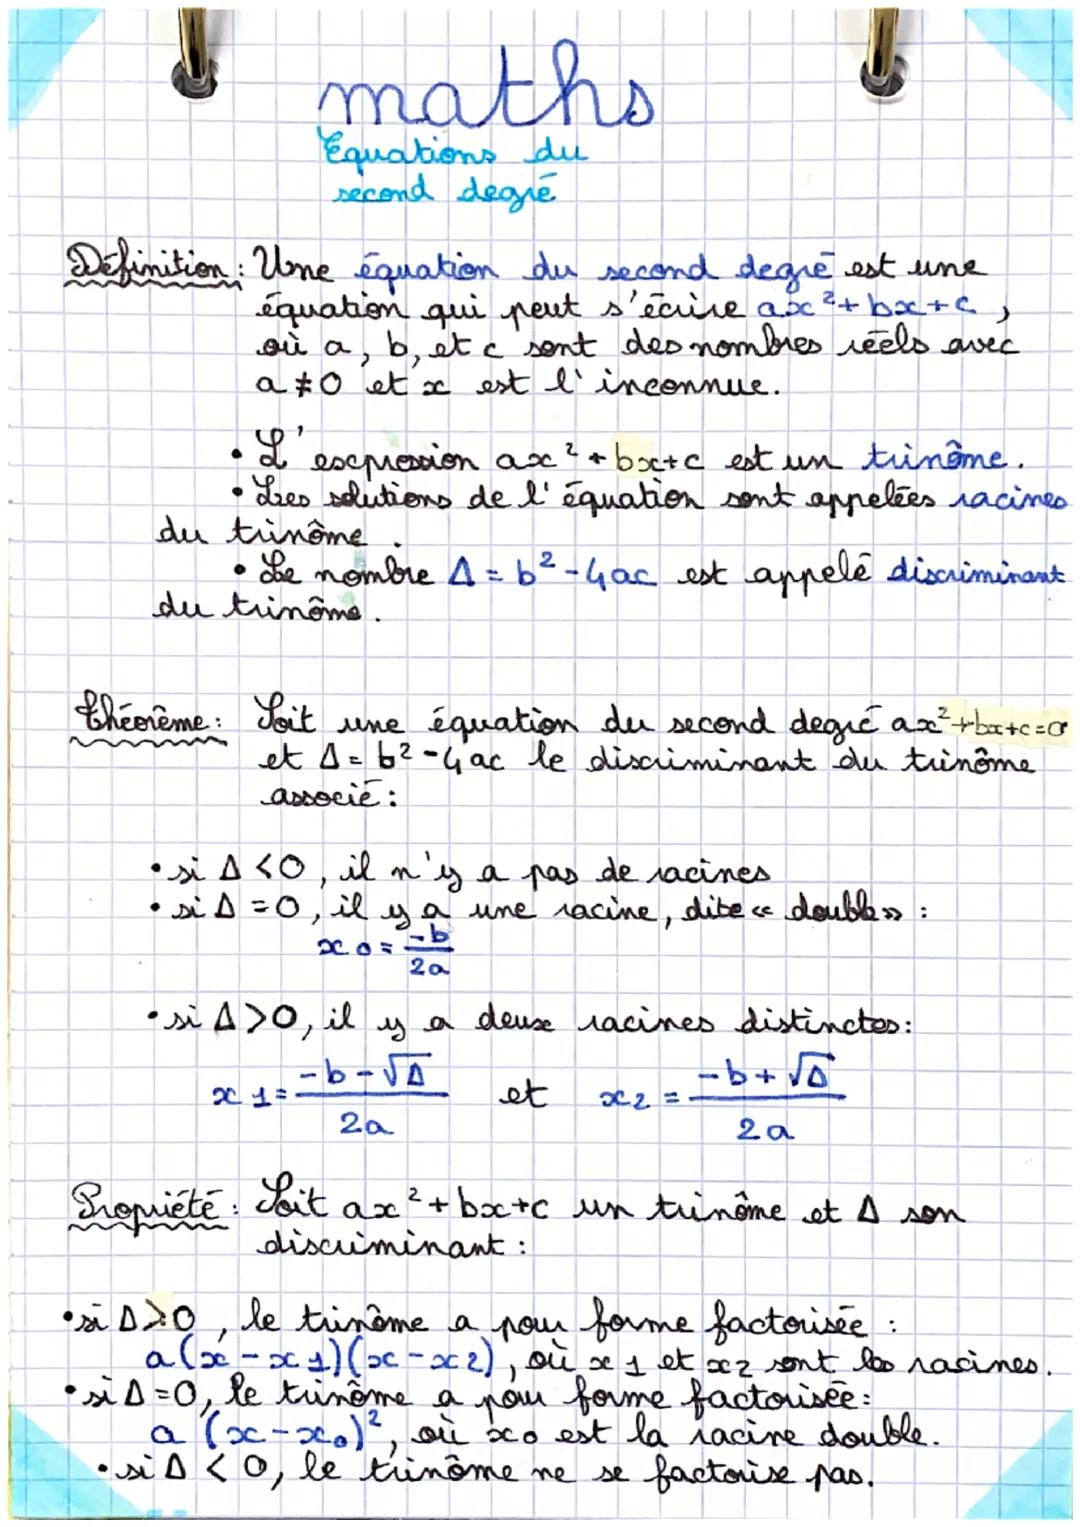 maths
Equations du
second degré
Définition : Une équation du second degré est une
équation qui peut s'écrire ax² + bx + c ,
où a, b, et c sont des nombres réels avec
a ≠ 0 et x est l'inconnue.
• L'expression ax² + bx+c est un trinôme.
• Les solutions de l'équation sont appelées racines
du trinôme.
• Le nombre Δ = b² - 4ac est appelé discriminant
du trinôme.
théorème : Soit une équation du second degré ax²+bx+c=0
et Δ = b² - 4ac le discriminant du trinôme
associé :
• si Δ < 0, il n'y a pas de racines
• si Δ = 0, il y a une racine, dite « double » :
x0 = -b/2a
• si Δ > 0, il y a deux racines distinctes :
x1 = (-b - √Δ)/2a et x2 = (-b + √Δ)/2a
Propriété : Soit ax² + bx+c un trinôme et Δ son
discriminant :
• si Δ > 0, le trinôme a pour forme factorisée :
a(x - x1)(x - x2), où x1 et x2 sont les racines.
• si Δ = 0, le trinôme a pour forme factorisée :
a (x - x0)², où x0 est la racine double.
• si Δ < 0, le trinôme ne se factorise pas.